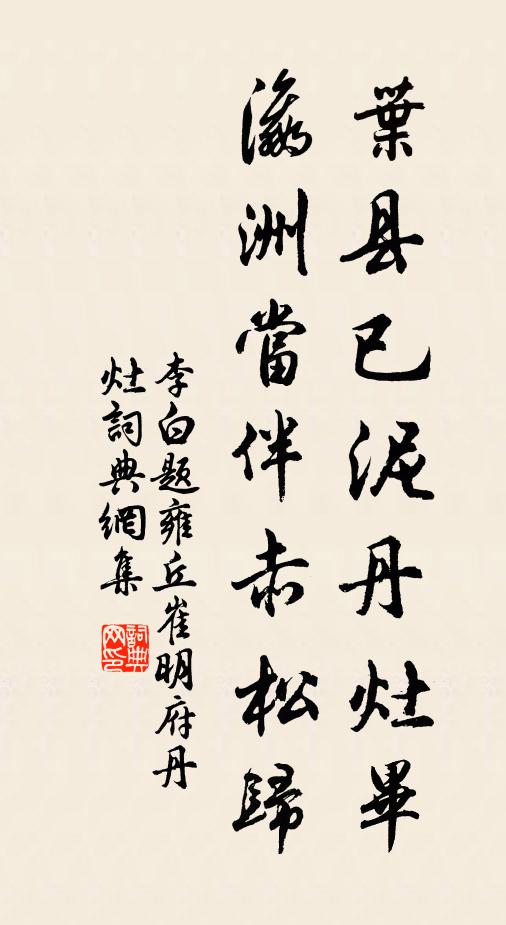 葉县已泥丹灶畢
瀛洲當伴赤松歸
李白题雍丘崔明府丹
灶詞典網集
詞典
网印